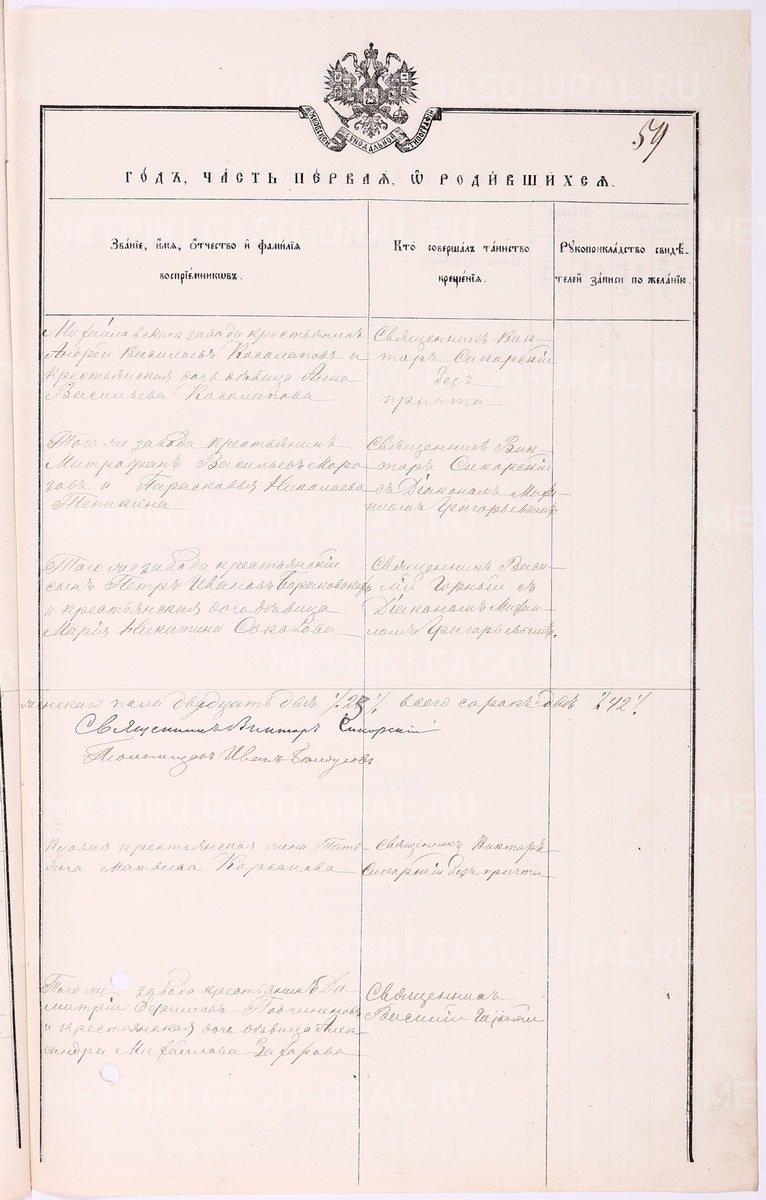 МОСКОВСКОЙ СѴНОДАЛЬНОЙ ТИПОГРАФІИ
59
ГОДЪ, ЧАСТЬ ПЕРВАЯ, Ѿ РОДИВШИХСЯ.
Званіе, имя, отчество и фамилія
воспріемниковъ.
Кто совершалъ таинство
крещенія.
Рукоприкладство свидѣ-
телей записи по желанію.
Михайловскаго завода крестьянинъ
Андрей Васильевъ Косолаповъ и
крестьянская дочь дѣвица Анна
Васильева Косолапова
Священникъ Вик-
торъ Сикорскій
безъ
причта
Того же завода крестьянинъ
Митрофанъ Васильевъ Моро
зовъ и Парасковья Николаева
Тепикина
Священникъ Вик
торъ Сикорскій
съ Діакономъ Миха-
иломъ Григорьевымъ
Того же завода крестьянскій
сынъ Петръ Ивановъ
и крестьянская дочь дѣвица
Марія Никитина Соколова
Священникъ Васи-
лій Горный съ
Діакономъ Михаи-
ломъ Григорьевымъ.
женскаго пола двадцать два /23/ всего сорокъ два /42/
Священникъ Викторъ Сикорскій
Иванъ
крестьянская жена Тать-
яна Матвеева Корсакова
Священникъ Викторъ
Сикорскій безъ причта
Того же завода крестьянинъ Ди-
митрій Ефимовъ
и крестьянская дочь дѣвица Алек
сандра Михайлова Захарова
Священникъ
Василій Горный
METRIKI.GASO-URAL.RU